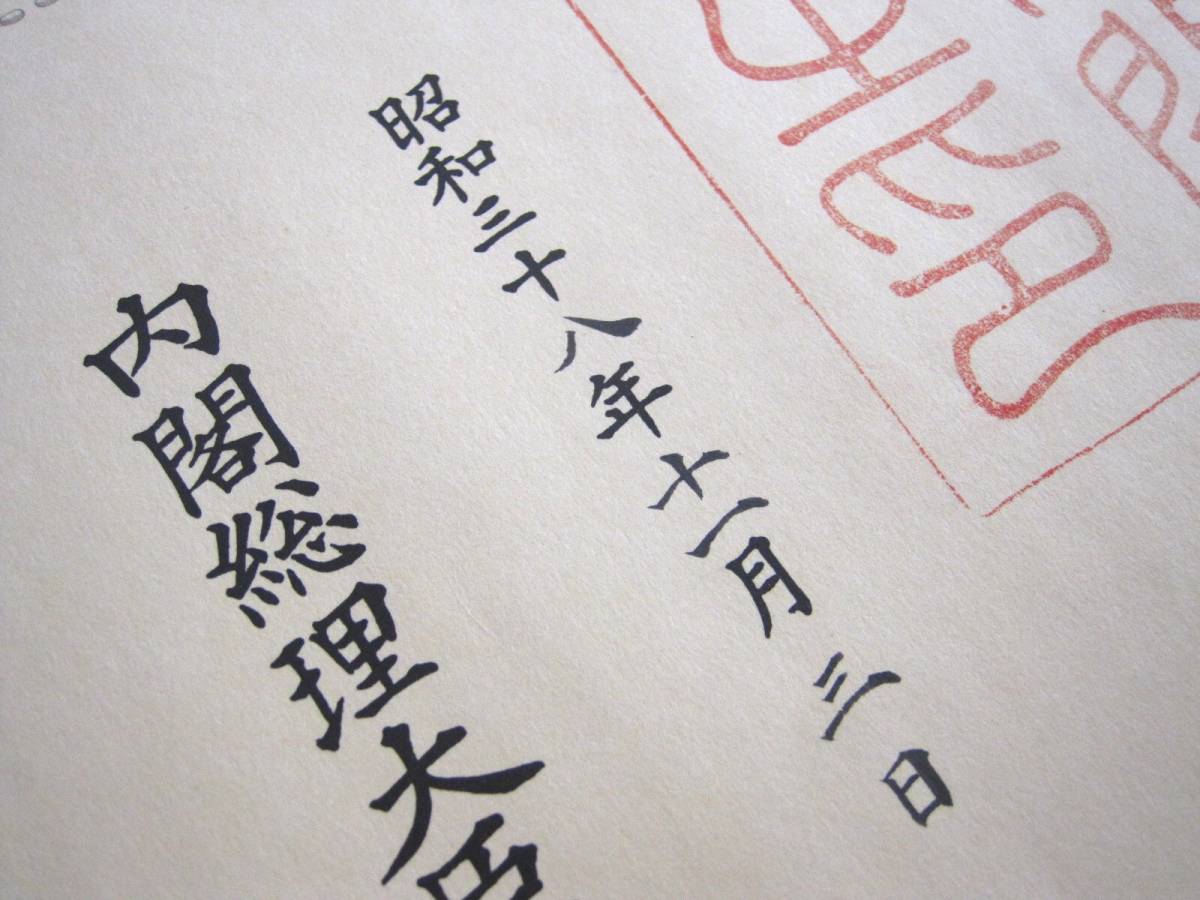 昭和三十八年十一月三日
内閣総理大臣